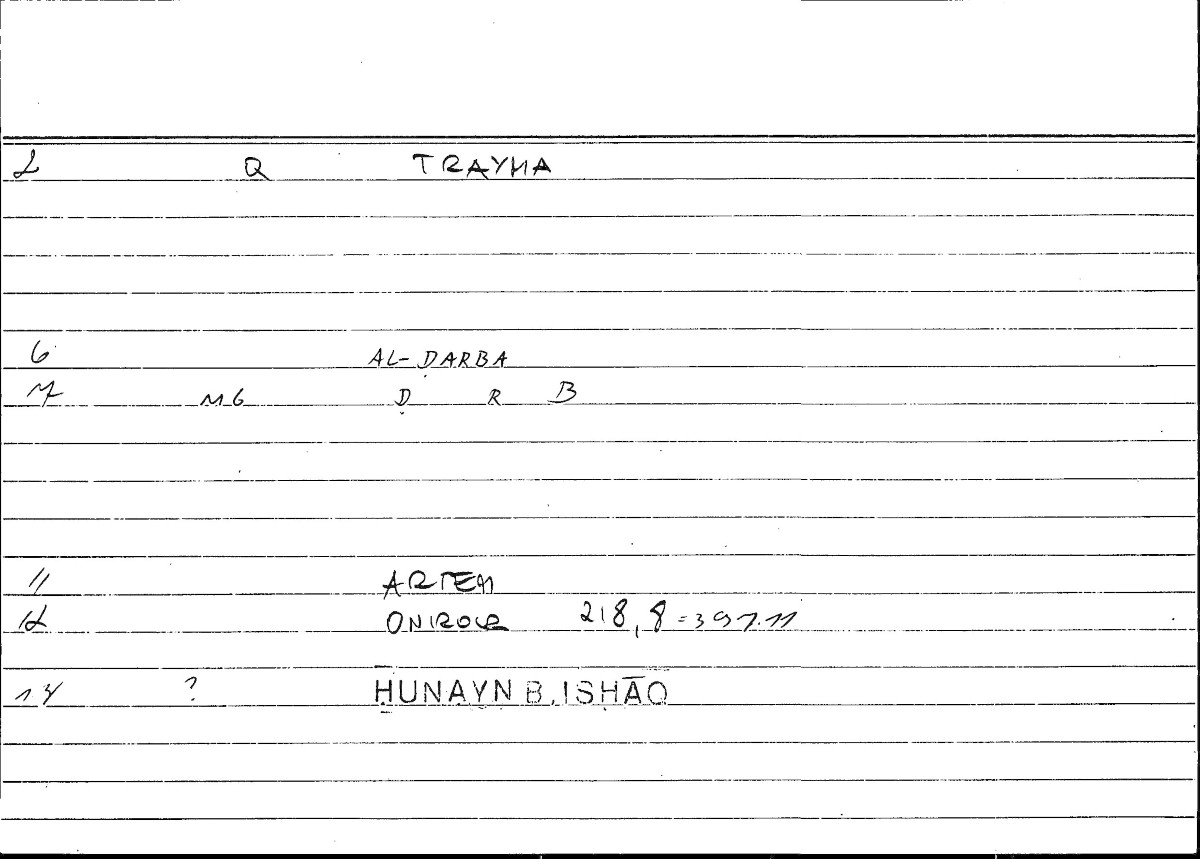 L Q TRAYMA
6 AL-ḌARBA
7 MG Ḍ R B
11 ARTEM
12 ONIROCR 218,8=397.11
14 ? ḤUNAYN B.ISḤĀQ